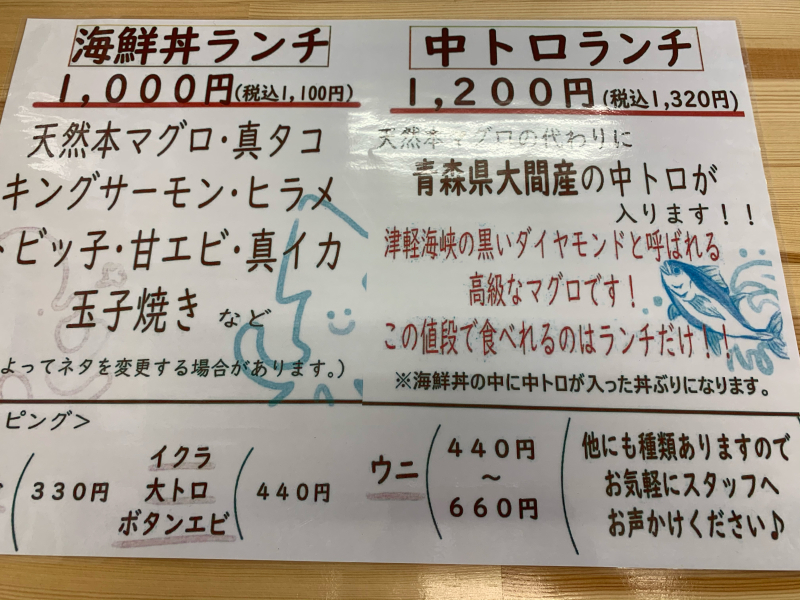 海鮮丼ランチ
1,000円(税込1,100円)
天然本マグロ・真タコ
キングサーモン・ヒラメ
・ビッ子・甘エビ・真イカ
玉子焼き など
よってネタを変更する場合があります。)
中トロランチ
1,200円(税込1,320円)
天然本マグロの代わりに
青森県大間産の中トロが
入ります!!
津軽海峡の黒いダイヤモンドと呼ばれる
高級なマグロです!
この値段で食べれるのはランチだけ!!
※海鮮丼の中に中トロが入った丼ぶりになります。
ピング>
330円
イクラ
大トロ
ボタンエビ
440円
ウニ
440円
~
660円
他にも種類ありますので
お気軽にスタッフへ
お声かけください♪